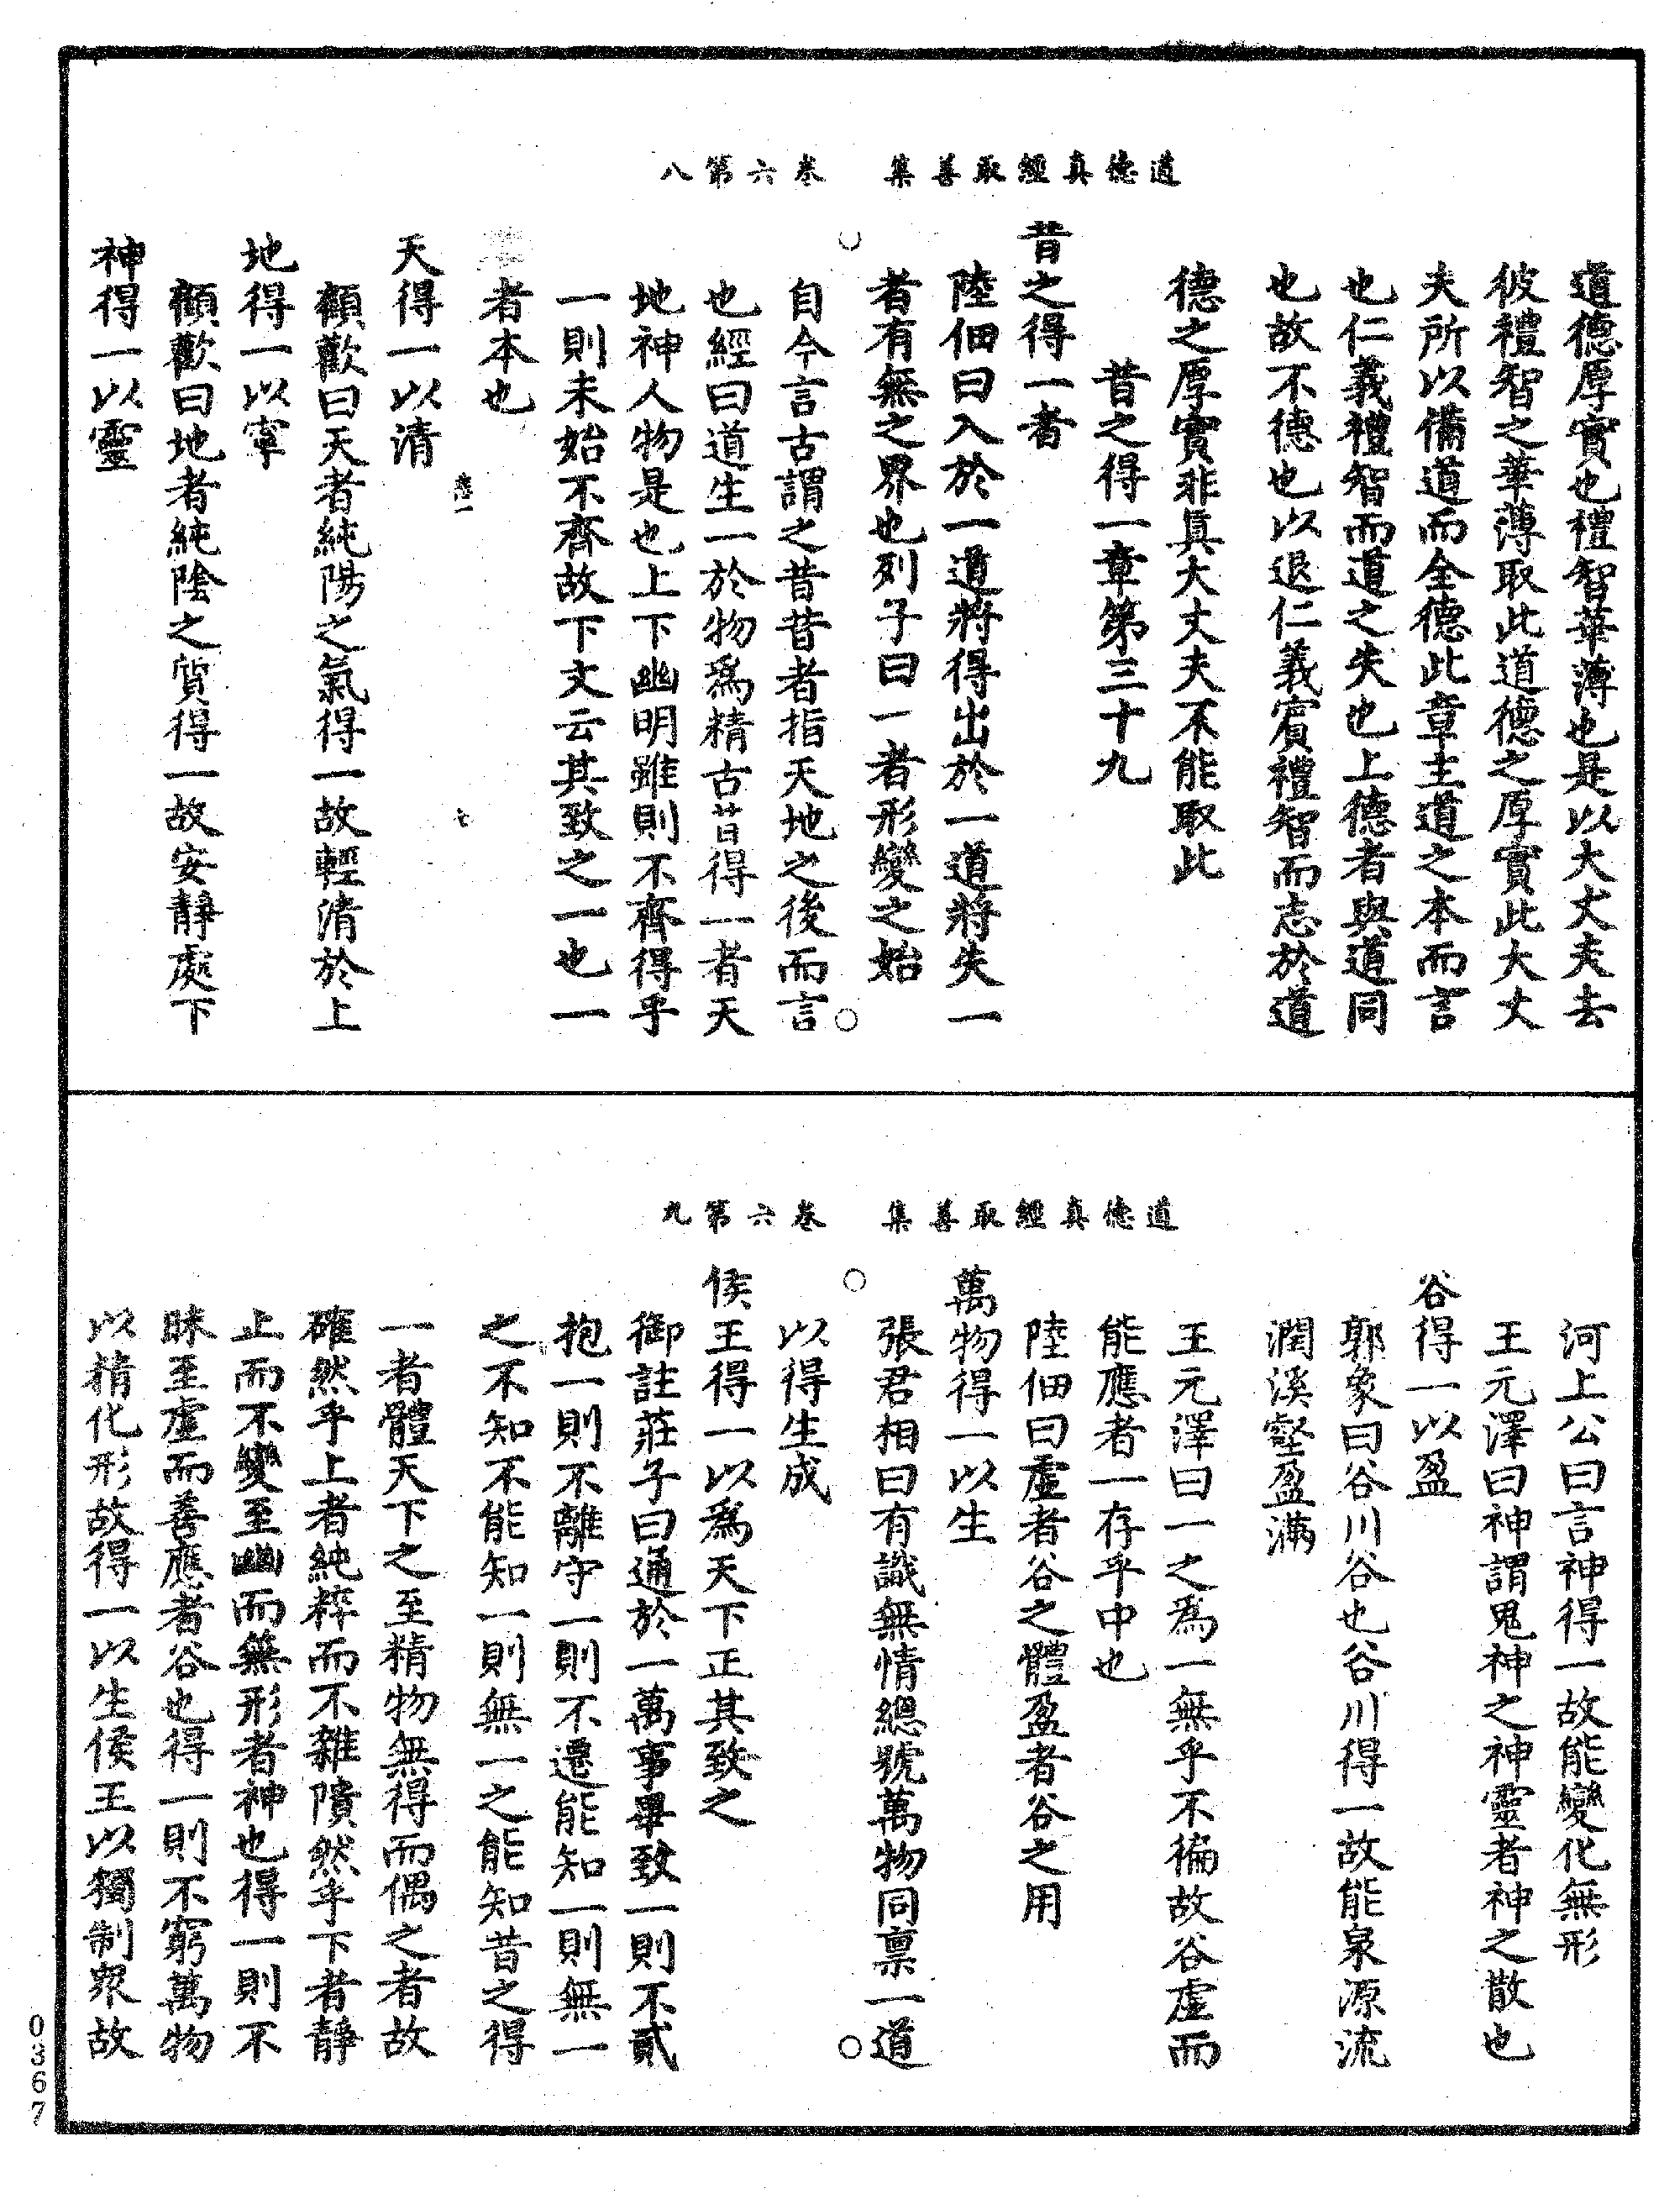 道德真經取善集　卷六第八
道德厚實也禮智華薄也是以大丈夫去
彼禮智之華薄取此道德之厚實此大丈
夫所以備道而全德此章主道之本而言
也仁義禮智而道之失也上德者與道同
也故不德也以退仁義賓禮智而志於道
德之厚實非眞大丈夫不能取此
昔之得一章第三十九
昔之得一者
陸佃曰入於一道將得出於一道將失一
者有無之界也列子曰一者形變之始
自今言古謂之昔昔者指天地之後而言
也經曰道生一於物爲精古昔得一者天
地神人物是也上下幽明雖則不齊得乎
一則未始不齊故下文云其致之一也一
者本也
天得一以清
顧歡曰天者純陽之氣得一故輕清於上
地得一以寧
顧歡曰地者純陰之質得一故安靜處下
神得一以靈
道德真經取善集　卷六第九
河上公曰言神得一故能變化無形
王元澤曰神謂鬼神之神靈者神之散也
谷得一以盈
郭象曰谷川谷也谷川得一故能泉源流
潤溪壑盈滿
王元澤曰一之爲一無乎不徧故谷虛而
能應者一存乎中也
陸佃曰虛者谷之體盈者谷之用
萬物得一以生
張君相曰有識無情總號萬物同禀一道
以得生成
侯王得一以爲天下正其致之
御註莊子曰通於一萬事畢致一則不貳
抱一則不離守一則不遷能知一則無一
之不知不能知一則無一之能知昔之得
一者體天下之至精物無得而偶之者故
確然乎上者純粹而不雜隤然乎下者靜
止而不變至幽而無形者神也得一則不
昧至虛而善應者谷也得一則不窮萬物
以精化形故得一以生侯王以獨制衆故
0367